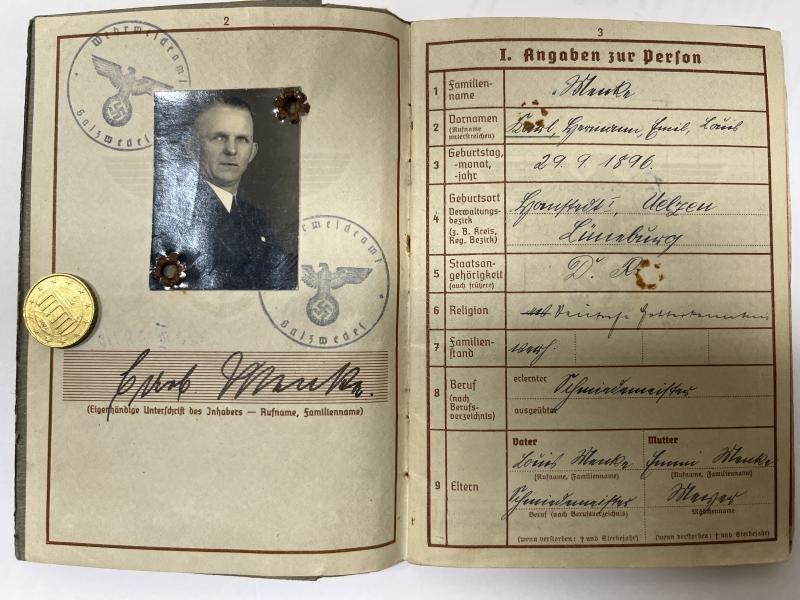 2
Wehrmeldeamt
Salzwedel
Wehrmeldeamt
Salzwedel
Menke.
(Eigenhändige Unterschrift des Inhabers — Rufname, Familienname)
3
I. Angaben zur Person
1 Familien-
name
Menke
2 Vornamen
(Rufname
unterstreichen)
Hermann, Emil, Louis
3 Geburtstag,
-monat,
-jahr
29. 9. 1896.
4 Geburtsort
Verwaltungs-
bezirk
(z. B. Kreis,
Reg. Bezirk)
Hanstedt I, Uelzen
Lüneburg
5 Staatsan-
gehörigkeit
(auch frühere)
D. R.
6 Religion
Deutsche
7 Familien-
stand
verh.
8 Beruf
(nach
Berufs-
verzeichnis)
erlernter
Schmiedemeister
ausgeübter
9 Eltern
Vater
Louis Menke
(Rufname, Familienname)
Schmiedemeister
Beruf (nach Berufsverzeichnis)
(wenn verstorben: † und Sterbejahr)
Mutter
Emmi Menke
(Rufname, Familienname)
Meyer
Mädchenname
(wenn verstorben: † und Sterbejahr)